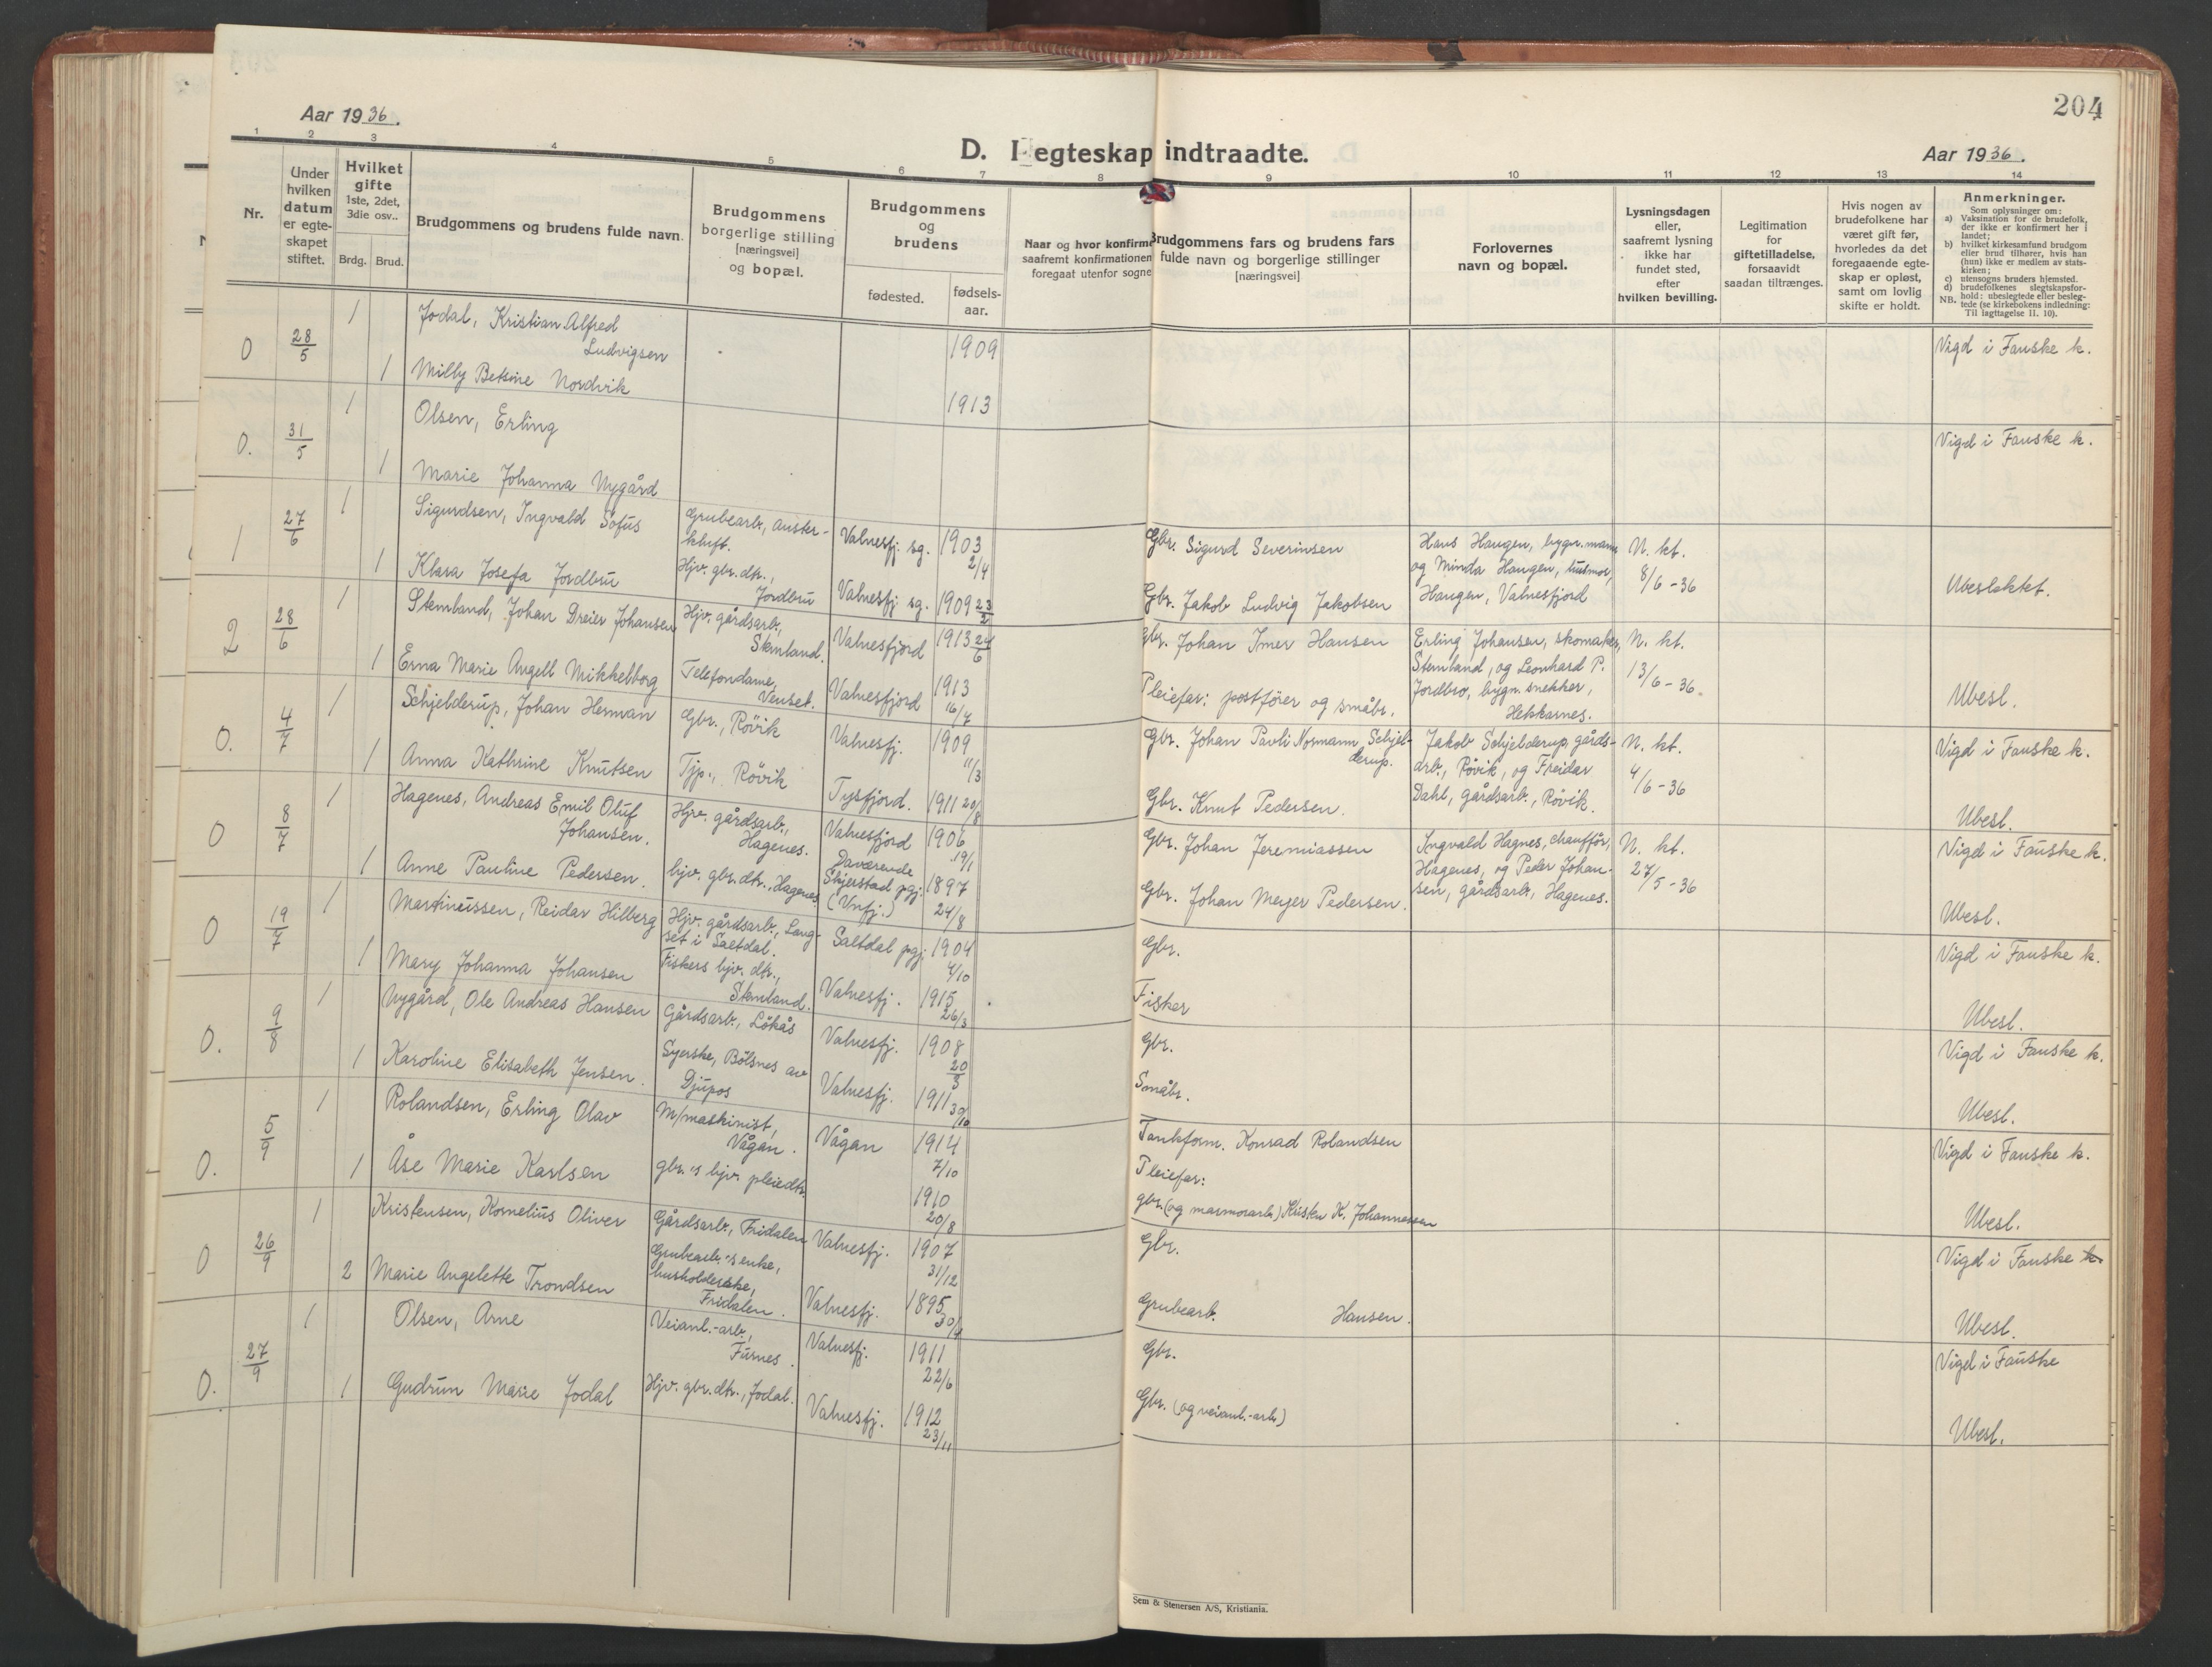 204
Aar 1936.
D. I egteskap indtraadte.
Aar 1936.
1 2 3 4 5 6 7 8 9 10 11 12 13 14
Nr.
Under hvilken datum er egteskapet stiftet.
Hvilket gifte 1ste, 2det, 3die osv..
Brdg. Brud.
Brudgommens og brudens fulde navn.
Brudgommens borgerlige stilling [næringsvei] og bopæl.
Brudgommens og brudens
fødested. fødsels-aar.
Naar og hvor konfirm
saafremt konfirmationen
foregaat utenfor sogne
Brudgommens fars og brudens fars
fulde navn og borgerlige stillinger
[næringsvei]
Forlovernes navn og bopæl.
Lysningsdagen eller, saafremt lysning ikke har fundet sted, efter hvilken bevilling.
Legitimation for giftetilladelse, forsaavidt saadan tiltrænges.
Hvis nogen av brudefolkene har været gift før, hvorledes da det foregaaende egteskap er opløst, samt om lovlig skifte er holdt.
Anmerkninger.
Som oplysninger om:
a) Vaksination for de brudefolk, der ikke er konfirmert her i landet;
b) hvilket kirkesamfund brudgom eller brud tilhører, hvis han (hun) ikke er medlem av statskirken;
c) utensogns bruders hjemsted.
d) brudefolkenes slegtskapsforhold: ubeslegtede eller beslegtede (se kirkebokens indledning: Til iagttagelse II. 10).
NB.
0 28/5 1 Jodal, Kristian Alfred Ludvigsen 1909 Vigd i Fauske k.
1 Milly Betsine Nordvik 1913
0. 31/5 1 Olsen, Erling Vigd i Fauske k.
1 Marie Johanna Nygård
1 27/6 1 Sigurdsen, Ingvald Sofus Grubearb., Austerkluft. Valnesfj. sg. 1903 2/4 Gbr. Sigurd Severinsen Hans Haugen, bygn.mann og Minda Haugen, husmor, Haugen, Valnesfjord N. kt. 8/6-36
1 Klara Josefa Jordbru Hjv. gbr.dtr., Jordbru Valnesfj. sg. 1909 23/2 Gbr. Jakob Ludvig Jakobsen Ubeslektet.
2 28/6 1 Stemland, Johan Dreier Johansen Hjv. gårdsarb., Stemland. Valnesfjord 1913 24/6 Gbr. Johan Imer Hansen Erling Johansen, skomaker, Stemland, og Leonhard P. Jordbro, bygn.snekker, Hekkarnes. N. kt. 13/6-36.
1 Erna Marie Angell Mikkelborg Telefondame, Venset. Valnesfjord 1913 16/7 Pleiefar: postfører og småbr. Ubesl.
0. 4/7 1 Schjelderup, Johan Herman Gbr., Røvik Valnesfj. 1909 11/3 Gbr. Johan Pavli Normann Schjelderup. Jakob Schjelderup, gårdsarb., Røvik, og Freidar Dahl, gårdsarb., Røvik. N. kt. 4/6-36 Vigd i Fauske k.
1 Anna Kathrine Knutsen Tjp., Røvik Tysfjord. 1911 20/8 Gbr. Knut Pedersen. Ubesl.
0 8/7 1 Hagenes, Andreas Emil Oluf Johansen. Hjv. gårdsarb., Hagenes. Valnesfjord 1906 19/1 Gbr. Johan Jeremiassen Ingvald Hagnes, chauffør, Hagenes, og Peder Johansen, gårdsarb., Hagenes. N. kt. 27/5-36 Vigd i Fauske k.
1 Anne Pauline Pedersen. hjv. gbr.dtr., Hagenes Daværende Skjerstad pgj. (Vnfj.) 1897 24/8 Gbr. Johan Meyer Pedersen. Ubesl.
0 19/7 1 Martineussen, Reidar Hilberg Hjv. gårdsarb., Langset i Saltdal. Saltdal pgj. 1904 4/10 Gbr. Vigd i Fauske k.
1 Mary Johanna Johansen Fiskers hjv. dtr., Stemland. Valnesfj. 1915 26/3 Fisker Ubesl.
0. 9/8 1 Nygård, Ole Andreas Hansen Gårdsarb., Løkås Valnesfj. 1908 20/3 Gbr. Vigd i Fauske k.
1 Karoline Elisabeth Jensen. Syerske, Bølsnes av Djupos Valnesfj. 1911 30/10 Småbr. Ubesl.
0. 5/9 1 Rolandsen, Erling Olav M/maskinist, Vågan. Vågan 1914 7/10 Tankform. Konrad Rolandsen Vigd i Fauske k.
1 Åse Marie Karlsen gbr.'s hjv. pleiedtr. 1910 20/8 Pleiefar: gbr. (og marmorarb.) K. Johannessen Ubesl.
0 26/9 1 Kristensen, Kornelius Oliver Gårdsarb., Fridalen Valnesfj. 1907 31/12 Gbr. Vigd i Fauske k.
2 Marie Angelette Trondsen Grubearb.'s enke, husholderske, Fridalen. Valnesfj. 1895 30/4 Grubearb. Hansen. Ubesl.
0. 27/9 1 Olsen, Arne Veianl.-arb., Furnes. Valnesfj. 1911 22/6 Gbr. Vigd i Fauske
1 Gudrun Marie Jodal Hjv. gbr.dtr., Jodal. Valnesfj. 1912 23/11 Gbr. (og veianl.-arb.) Ubesl.
Sem & Stenersen A/S, Kristiania.